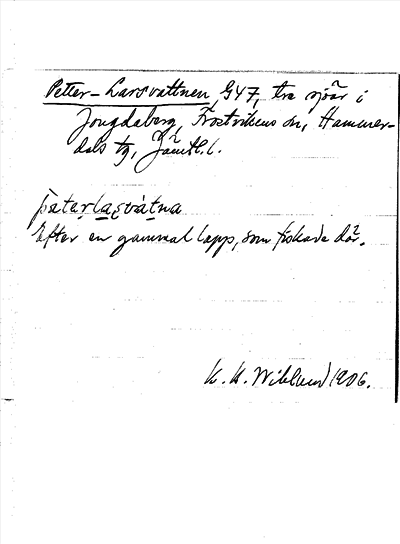 Petter-Larsvattnen, G47, tre sjöar i
Jougdaberg, Frostvikens sn, Hammer-
dals tg, Jämtl. l.
péterlasvátna
Efter en gammal lapp, som fiskade där.
K. K. Wiklund 1906.